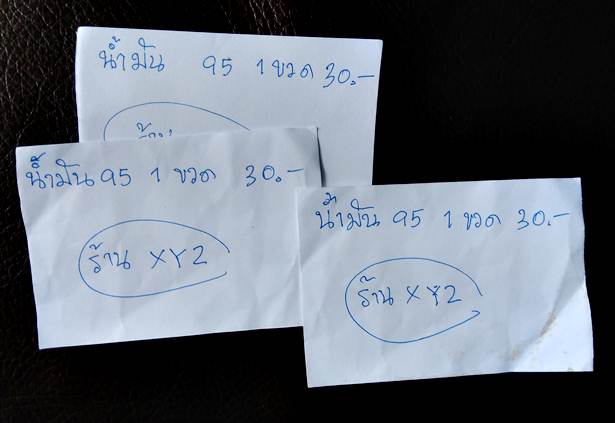 น้ำมัน 95 1 ขวด 30.-
ร้าน
น้ำมัน 95 1 ขวด 30.-
ร้าน XYZ
น้ำมัน 95 1 ขวด 30.-
ร้าน XYZ